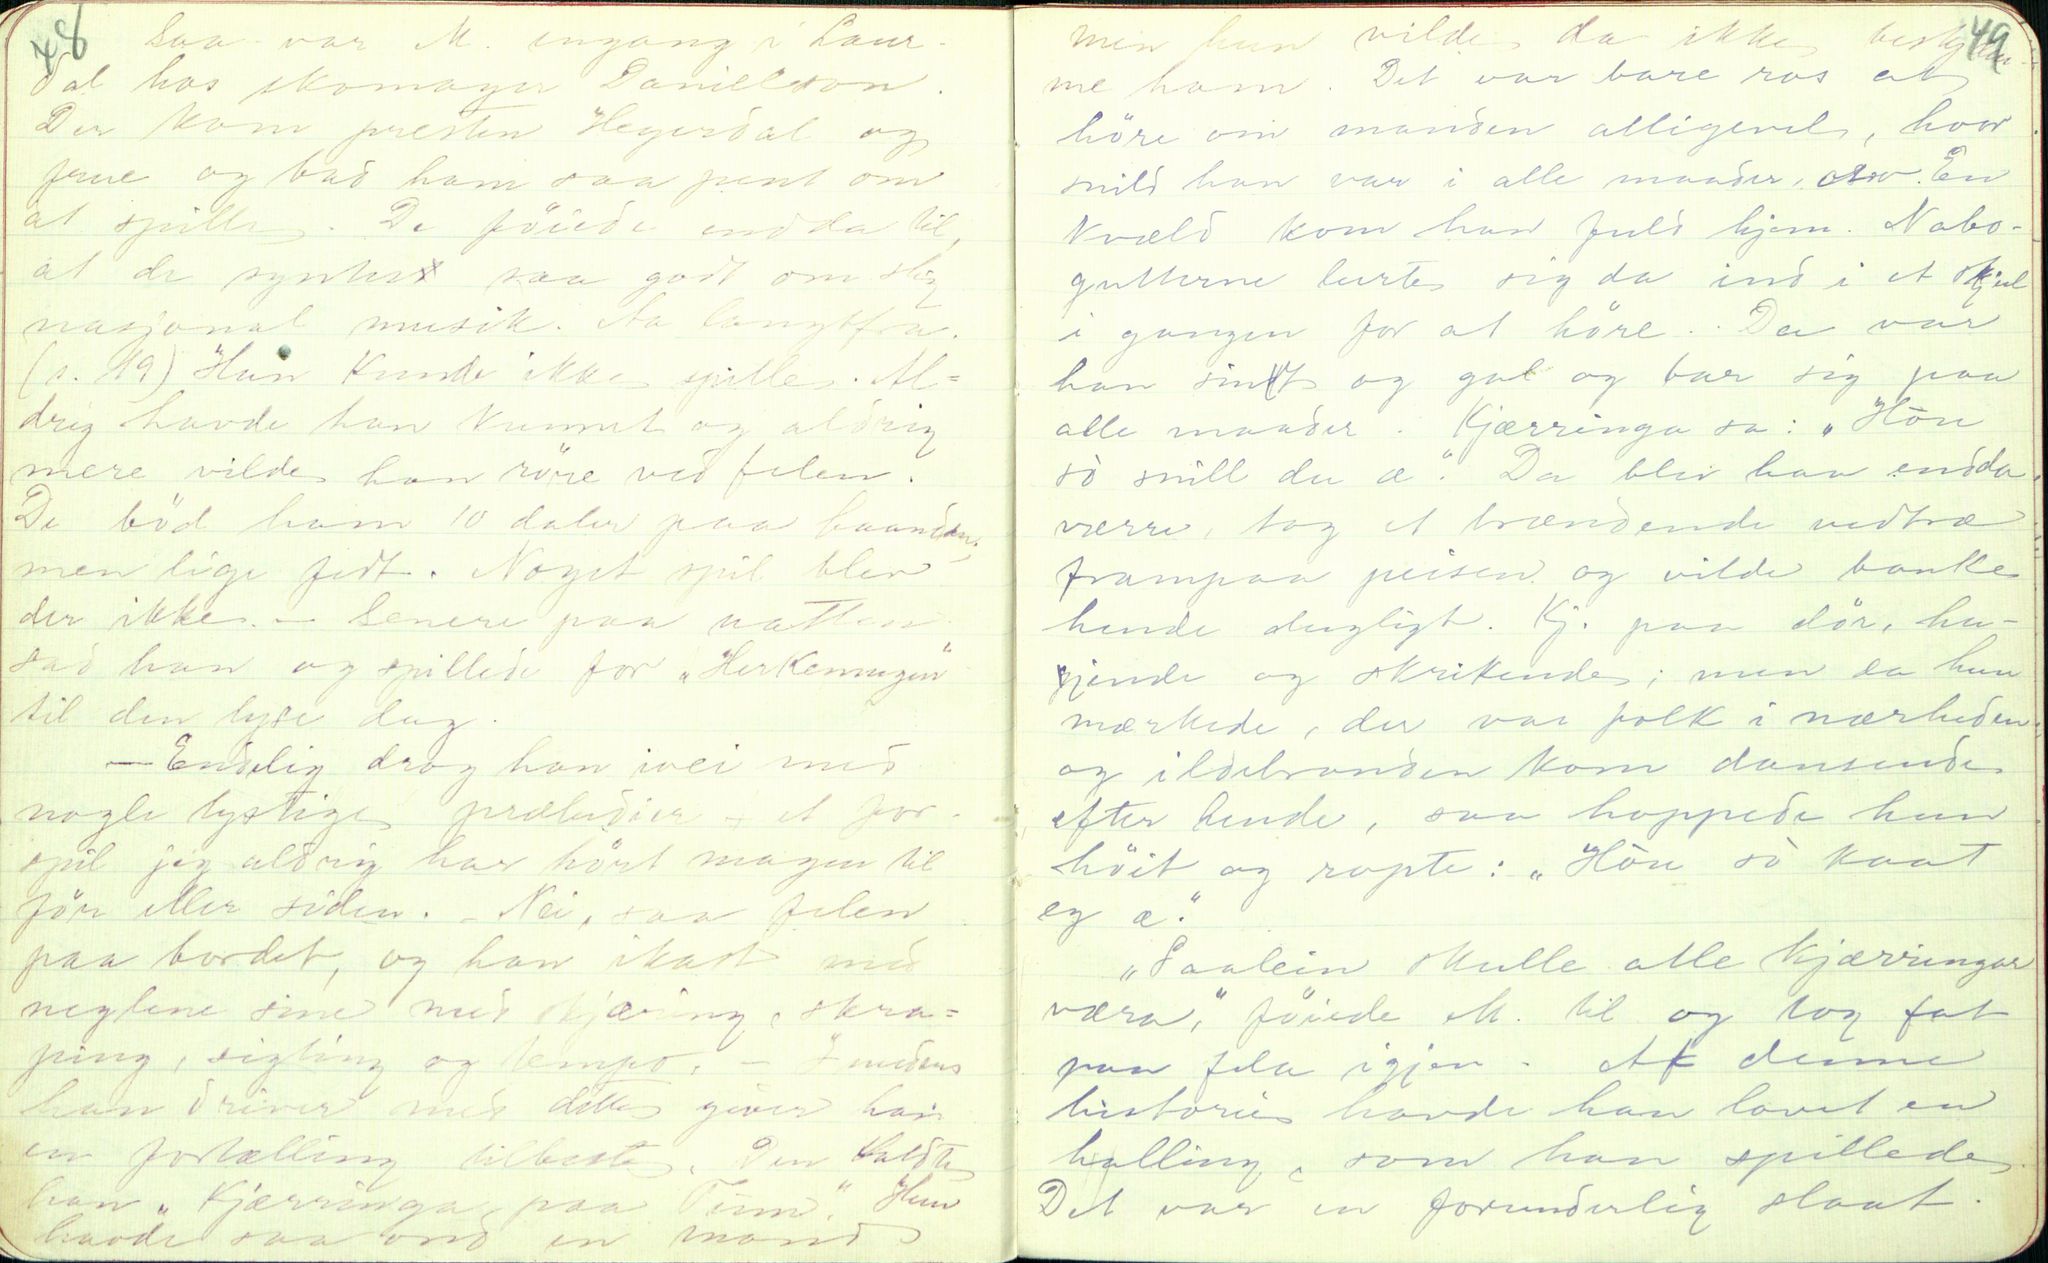 48
Saa var M. engang i Laur-
dal hos skomager Danielson.
Der kom presten Hegerdal og
frue og bad ham saa pent om
at spille. De föiede endda til,
at de syntes saa godt om slig
nasjonal musik. Aa langtfra.
(s. 19) Han kunde ikke spille. Al=
drig havde han kunnet og aldrig
mere vilde han röre ved felen.
De böd ham 10 daler paa haanden,
men lige fedt. Noget spil blev
der ikke. – Senere paa natten
sad han og spillede for „Herkemugen"
til den lyse dag.
— Endelig drog han ivei med
nogle lystige præludier – et for-
spil jeg aldrig har hört magen til
för eller siden. – Nei, saa felen
paa bordet, og han ikast med
neglene sine med skjæring, skra=
ping, sigting og tempo. – Imedens
han driver med dette giver han
en fortælling tilbeste. Den kaldte
han „Kjærringa paa Tinn". Hun
havde saa ond en mand
49
men hun vilde da ikke beskjæm-
me ham. Det var bare ros at
höre om manden alligevel, hvor
snild han var i alle maader, osv. En
kvæld kom han fuld hjem. Nabo-
gutterne lurte sig da ind i et skjul
i gangen for at höre. Da var
han sint og gal og bar sig paa
alle maader. Kjærringa sa: „Höu
sò snill du æ". Da blev han endda
værre, tog et brændende vedtræ
frampaa peisen og vilde banke
hende dugligt. Kj. paa dör, hu-
jende og skrikende; men da hun
mærkede, der var folk i nærheden
og ildebranden kom dansende
efter hende, saa hoppede hun
höit og ropte: „Höu sò kaat
eg æ."
„Saalein skulle alle kjærringar
væra," föiede M. til og tog fat
paa fela igjen. Af denne
historie havde han lavet en
halling, som han spillede.
Det var en forunderlig slaat.